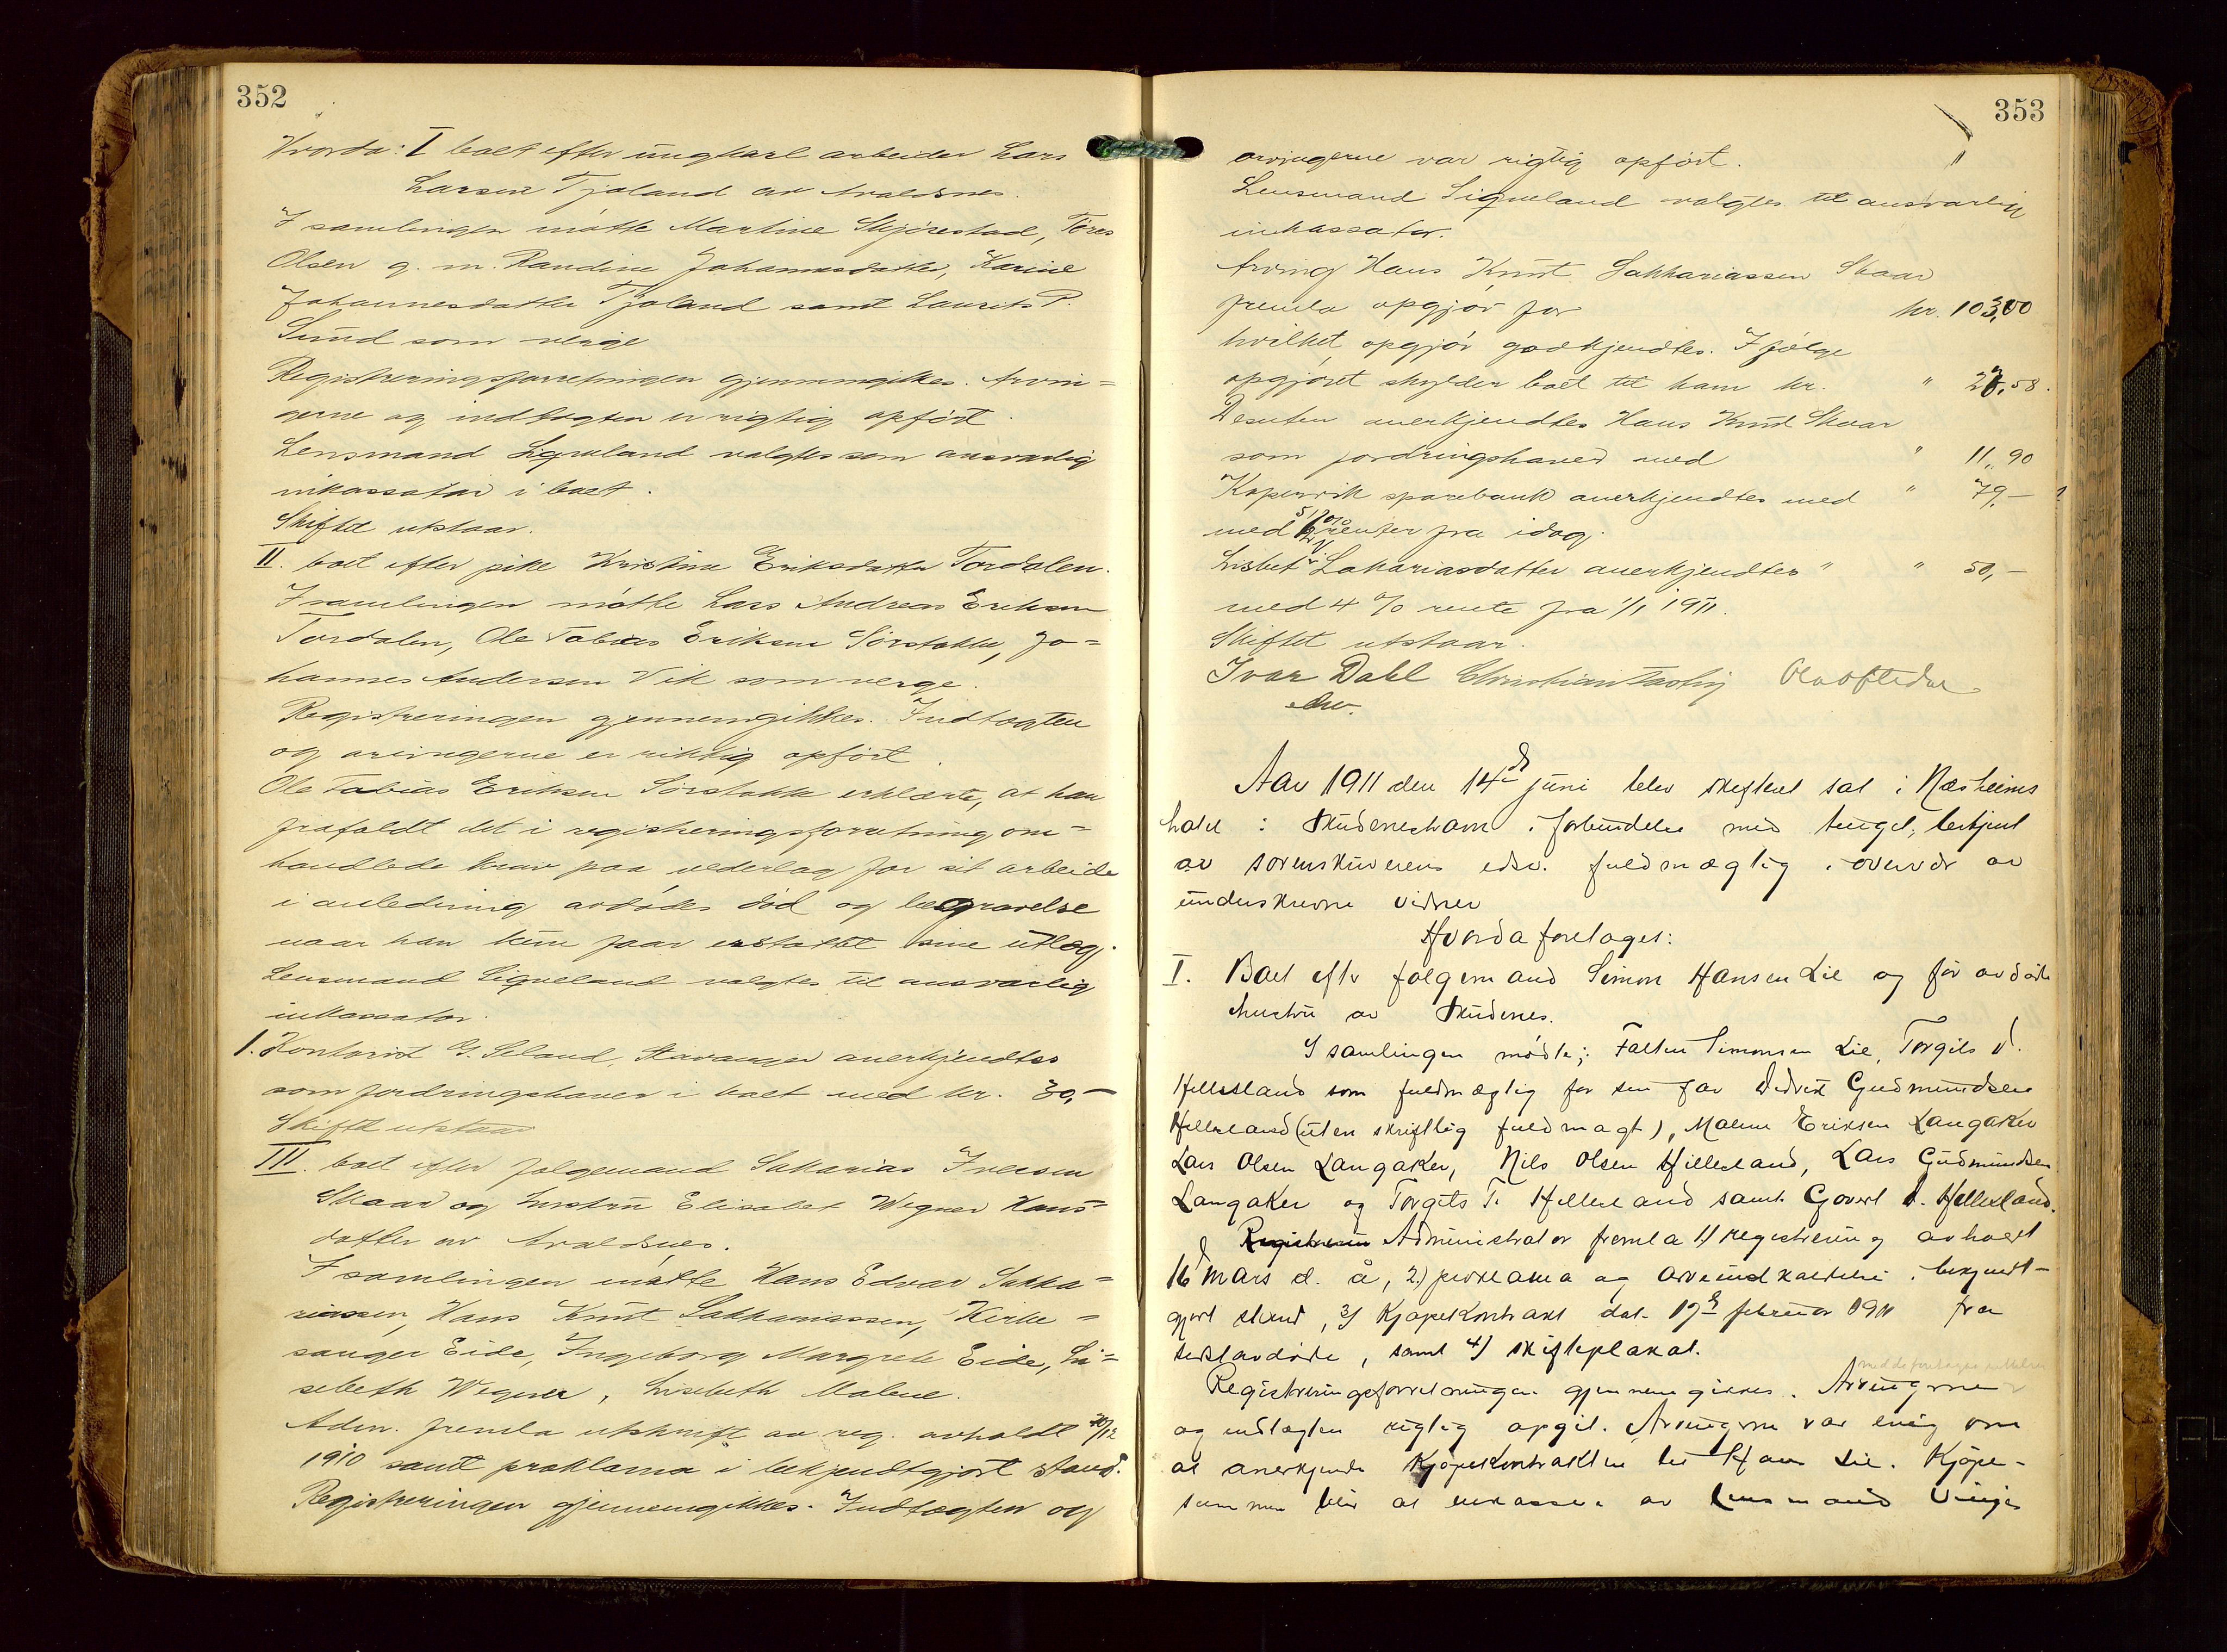 352
Hvorda: I boet efter ungkarl arbeider Lars
Larsen Tjoland av Avaldsnes.
I samlingen møtte Martine Stejørestad, Tøres
Olsen g. m. Randine Johannesdatter, Karine
Johannesdatter Tjoland samt Laurits P.
Sund som verge
Registreringsforretningen gjennemgikkes. Arvin=
gerne og indtægten er rigtig opført.
Lensmand Ligreland valgtes som ansvarlig
inkassator i boet.
Skiftet utstaar.
II. boet efter pike Kristine Eriksdatter Tordalen.
I samlingen møtte Lars Andreas Eriksen
Tordalen, Ole Tobias Eriksen Sørstokke, Jo=
hannes Andersen Vik som verge.
Registreringen gjennemgikkes. Indtægten
og arvingerne er riktig opført.
Ole Tobias Eriksen Sørstokke erklærte, at han
frafaldt det i registreringsforretning om=
handlede krav paa vederlag for sit arbeide
i anledning avdødes død og begravelse
naar han kun faar erstattet sine utlæg.
Lensmand Ligreland valgtes til ansvarlig
inkassator.
1. Kontorist G. Seland, Stavanger anerkjendtes
som fordringshaver i boet med kr. 30,-
Skiftet utstaar
III. boet efter følgemand Sakarias Iversen
Skaar og hustru Elisabet Wegner Hans=
datter av Avaldsnes.
I samlingen møtte Hans Edvar Sakka=
riassen, Hans Knut Sakkariassen, Kirke=
sanger Eide, Ingeborg Margrete Eide, Li=
sebeth Wegner, Lisebeth Malene.
Adm. fremla utskrift av reg. avholdt 20/12
1910 samt proklama i bekjendtgjort stand.
Registreringen gjennemgikkes. Indtægten og
353
arvingerne var rigtig opført.
Lensmand Ligreland valgtes til ansvarlig
inkassator.
Arving Hans Knut Sakkariassen Skaar
fremla opgjør for kr. 103,00
hvilket opgjør godkjendtes. Ifølge
opgjøret skylder boet til ham kr. " 28,58.
Desuten anerkjendtes Hans Knut Skaar
som fordringshaver med " 11,90
Kopervik sparebank anerkjendtes med " 79,-
med renter fra idag.
Lisbet Sakariasdatter anerkjendtes " " 50,-
med 4 % rente fra 1/1 1911.
Skiftet utstaar.
Ivar Dahl Christian
edsv.
Aar 1911 den 14de juni blev skifteret sat i Næsheims
hotel i Skudeneshavn i forbindelse med tinget, betjent
av sorenskriverens edsv. fuldmægtig i overvær av
underskrevne vidner
Hvorda foretoges:
I. Boet eftr følgemand Simon Hansen Lie og før avdøde
hustru av Skudenes.
I samlingen mødte; Falten Simonsen Lie, Torgils V.
Hellesland som fuldmægtig for sin far Gudmundsen
Hellesland (uten skriftlig fuldmagt), Malene Eriksen Langaker
Lars Olsen Langaker, Nils Olsen Hillesland, Lars Gudmundsen
Langaker og Torgils T. Hellesland samt Govert D. Hellesland.
Administrator fremla 1) registrering avholdt
16 mars d. å, 2.) proklama og arveindkaldelse i bekjendt-
gjort stand, 3) kjøpekontrakt dat. 17de februar 1911 fra
sidstavdøde, samt 4) skifteplakat.
Registreringsforretningen gjennemgikkes. Arvingerne
og indtægten rigtig opgit. Arvingerne var enig om
at anerkjende kjøpekontrakten til Hans Lie. Kjøpe-
summen blir at inkassere av lensmand Vinje